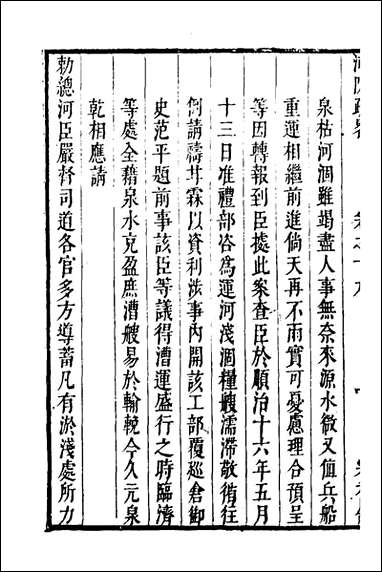 泉枯河涸雖竭盡人事無奈來源水微又值兵船
重運相繼前進倘天再不雨實可憂慮理合預呈
等因轉報到臣據此案查臣於順治十六年五月
十三日准禮部咨為運河淺涸糧艘濡滯敬循往
例請禱甘霖以資利涉事內開該工部覆巡倉御
史范平題前事該臣等議得漕運盛行之時臨濟
等處全藉泉水充盈庶漕艘易於輸輓今久元泉
乾相應請
勅總河臣嚴督司道各官多方導蓄凡有淤淺處所力